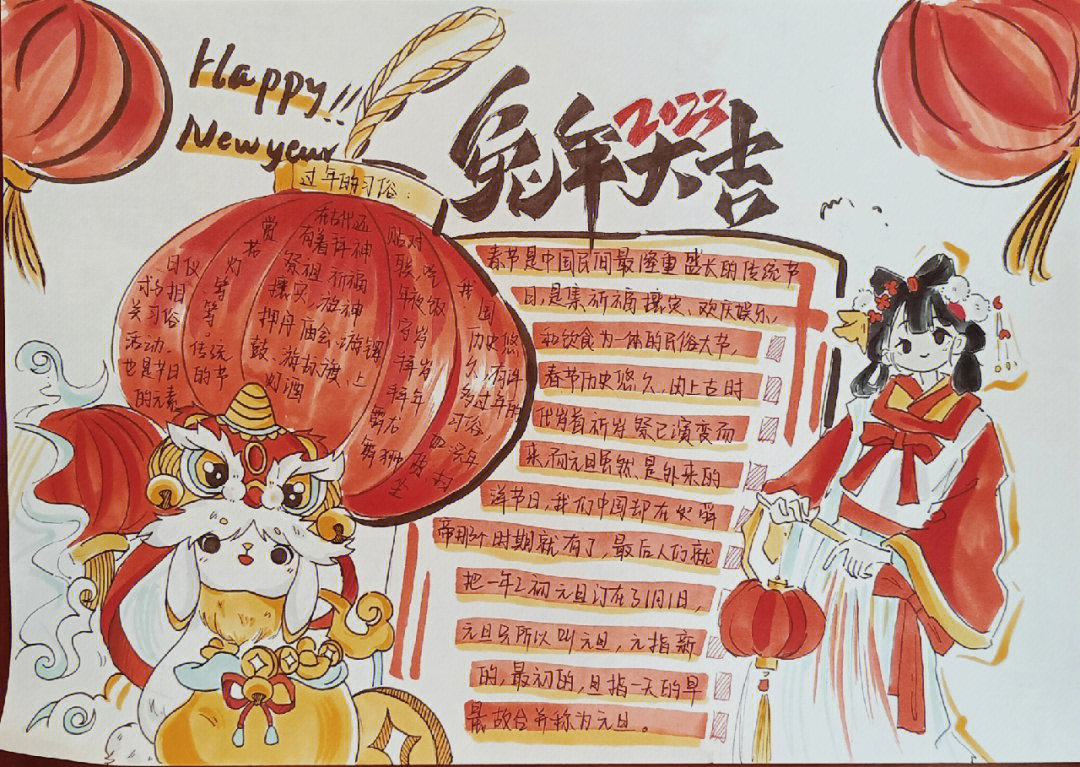 Happy!!
New year
兔年大吉
2023
过年的习俗:
国
历史悠
久,有许
多过年的
习俗,
贴对
联,吃
年夜饭
守岁
拜岁
拜年
舞龙
舞狮
在古代还
有着拜神
祭祖、祈福
攘灾、游神
押舟、庙会、游锣
鼓、游标旗、上
灯酒
赏
灯
等
等
传统
的节
日仪
相
关习俗
活动,
也是节日
的元素
春节是中国民间最隆重盛大的传统节
日,是集祈福攘灾、欢庆娱乐、
和饮食为一体的民俗大节,
春节历史悠久,由上古时
代岁首祈岁祭祀演变而
来,而元旦虽然、是外来的
洋节日,我们中国却在虞舜
帝那个时期就有了,最后人们就
把一年之初元旦订在了1月1日,
元旦只所以叫元旦,元指新
的,最初的,旦指一天的早
晨,故合并称为元旦。